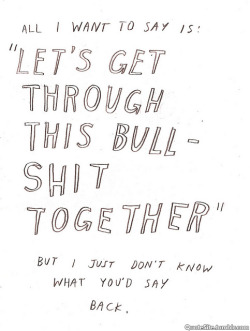 ALL I WANT TO SAY IS:
"LET'S GET
THROUGH
THIS BULL-
SHIT
TOGETHER"
BUT I JUST DON'T KNOW
WHAT YOU'D SAY
BACK.
QuoteSite.tumblr.com